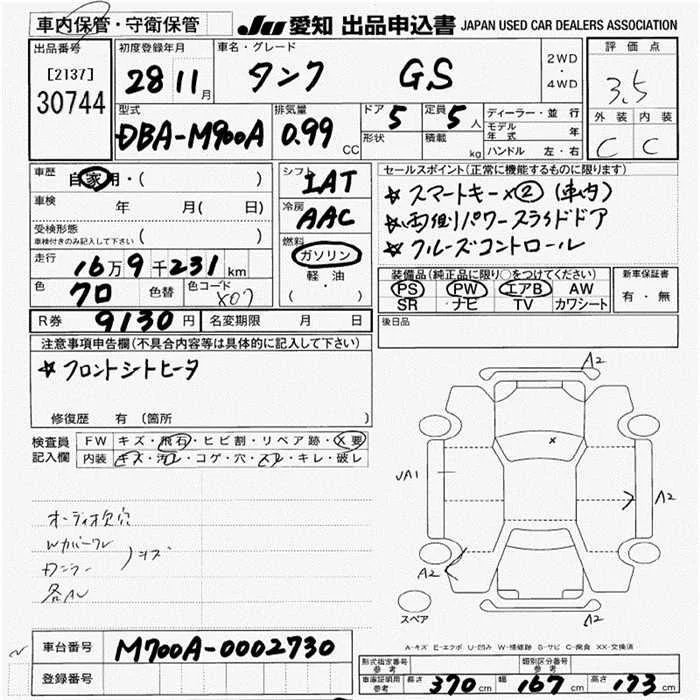 車内保管・守衛保管
JU 愛知 出品申込書 JAPAN USED CAR DEALERS ASSOCIATION
出品番号
[2137]
30744
初度登録年月
28 11月
車名・グレード
タンク GS
2WD
・
4WD
評価点
3.5
外装 内装
C C
型式
DBA-M900A
排気量
0.99 CC
ドア 5
定員 5人
形状
積載 kg
ディーラー・並行
モデル年式 年
ハンドル 左・右
車歴
自家用・( )
車検 年 月( 日)
受検形態
車検付きのみ記入して下さい ( )
走行
16万9千231km
色
クロ 色替
色コード
X07
シフト
IAT
冷房
AAC
燃料
ガソリン
軽油
( ・ )
セールスポイント(正常に機能するものに限ります)
☆スマートキー×② (車内)
☆両側パワースライドドア
☆クルーズコントロール
装備品(純正品に限り○をつけてください)
PS PW エアB AW
SR ナビ TV カワシート
新車保証書
有・無
R券 9130円 名変期限 月 日
後日品
注意事項申告欄(不具合内容等は具体的に記入して下さい)
☆フロントシートヒータ
修復歴 有(箇所 )
検査員記入欄
FW キズ・飛石・ヒビ割・リペア跡・X要
内装 キズ・汚レ・コゲ・穴・スレ・キレ・破レ
オーディオ欠穴
A2
x
JA1
A2
A2
A2
スペア
A-キズ E-エクボ U-凹み W-補修跡 S-サビ C-腐食 XX-交換済
車台番号
M900A-0002730
登録番号
形式指定番号
参考
類別区分番号
参考
車庫証明用
参考
長さ 370cm 幅 167cm 高さ 173cm